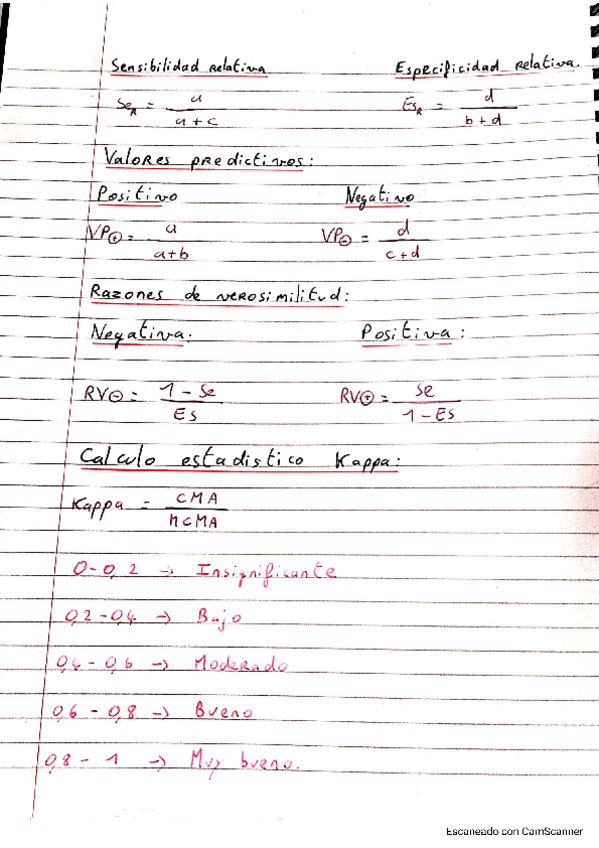 Sensibilidad relativa Especificidad relativa.
Se_R = a / a + c Es_R = d / b + d
Valores predictivos:
Positivo Negativo
VP⊕ = a / a+b VP⊖ = d / c+d
Razones de verosimilitud:
Negativa: Positiva:
RV⊖ = 1 - Se / Es RV⊕ = Se / 1 - Es
Calculo estadistico Kappa:
Kappa = CMA / MCMA
0-0,2 → Insignificante
0,2-0,4 → Bajo
0,4 - 0,6 → Moderado
0,6 - 0,8 → Bueno
0,8 - 1 → Muy bueno.
Escaneado con CamScanner